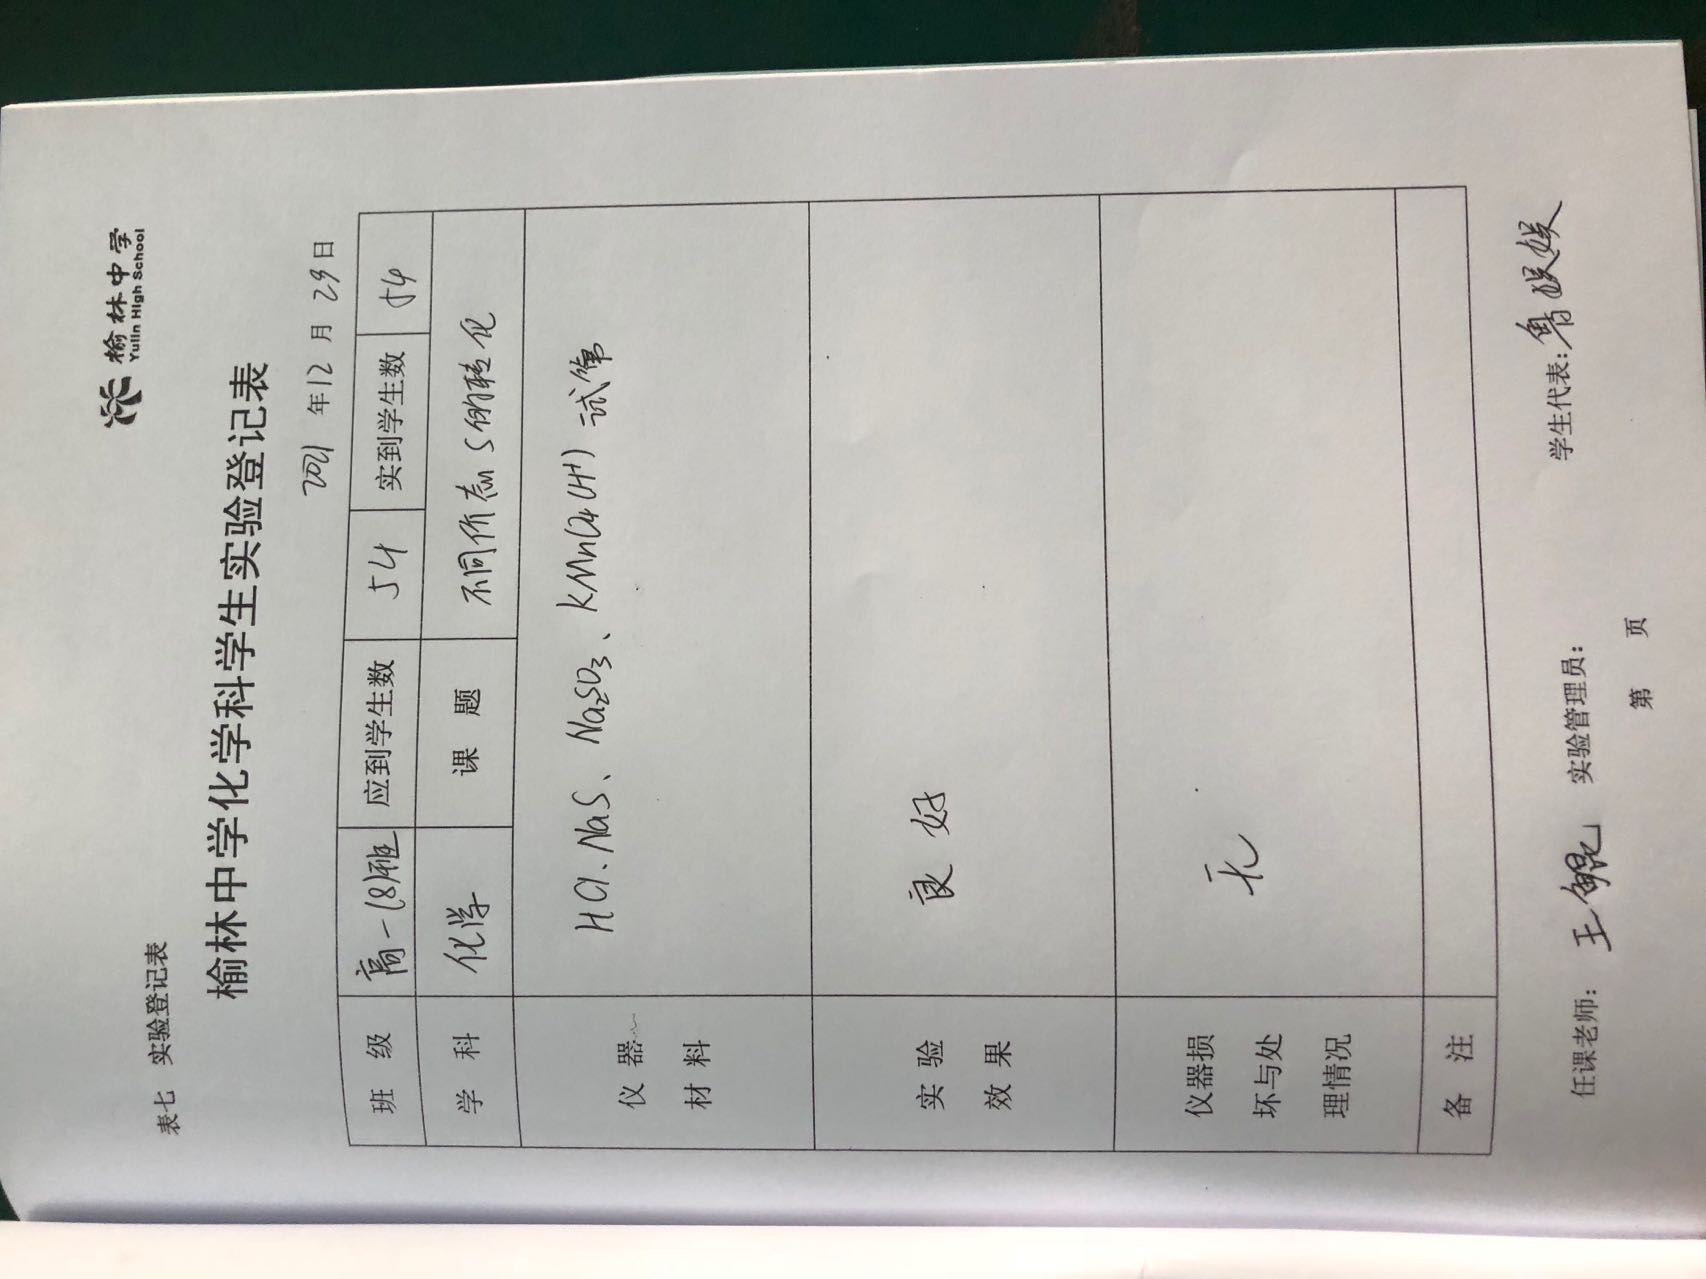 榆林中学
Yulin High School
表七 实验登记表
榆林中学化学科学生实验登记表
2021 年 12 月 29 日
班 级 高一(8)班 应到学生数 54 实到学生数 54
学 科 化学 课 题 不同价态S的转化
仪 器 材 料 HCl、NaS、Na₂SO₃、KMnO₄(H⁺) 试管
实 验 效 果 良好
仪器损坏与处理情况 无
备 注
任课老师: 王 实验管理员: 学生代表: 鲁
第 页